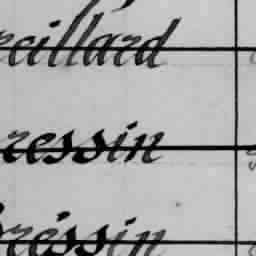 reillard
ressin
ressin